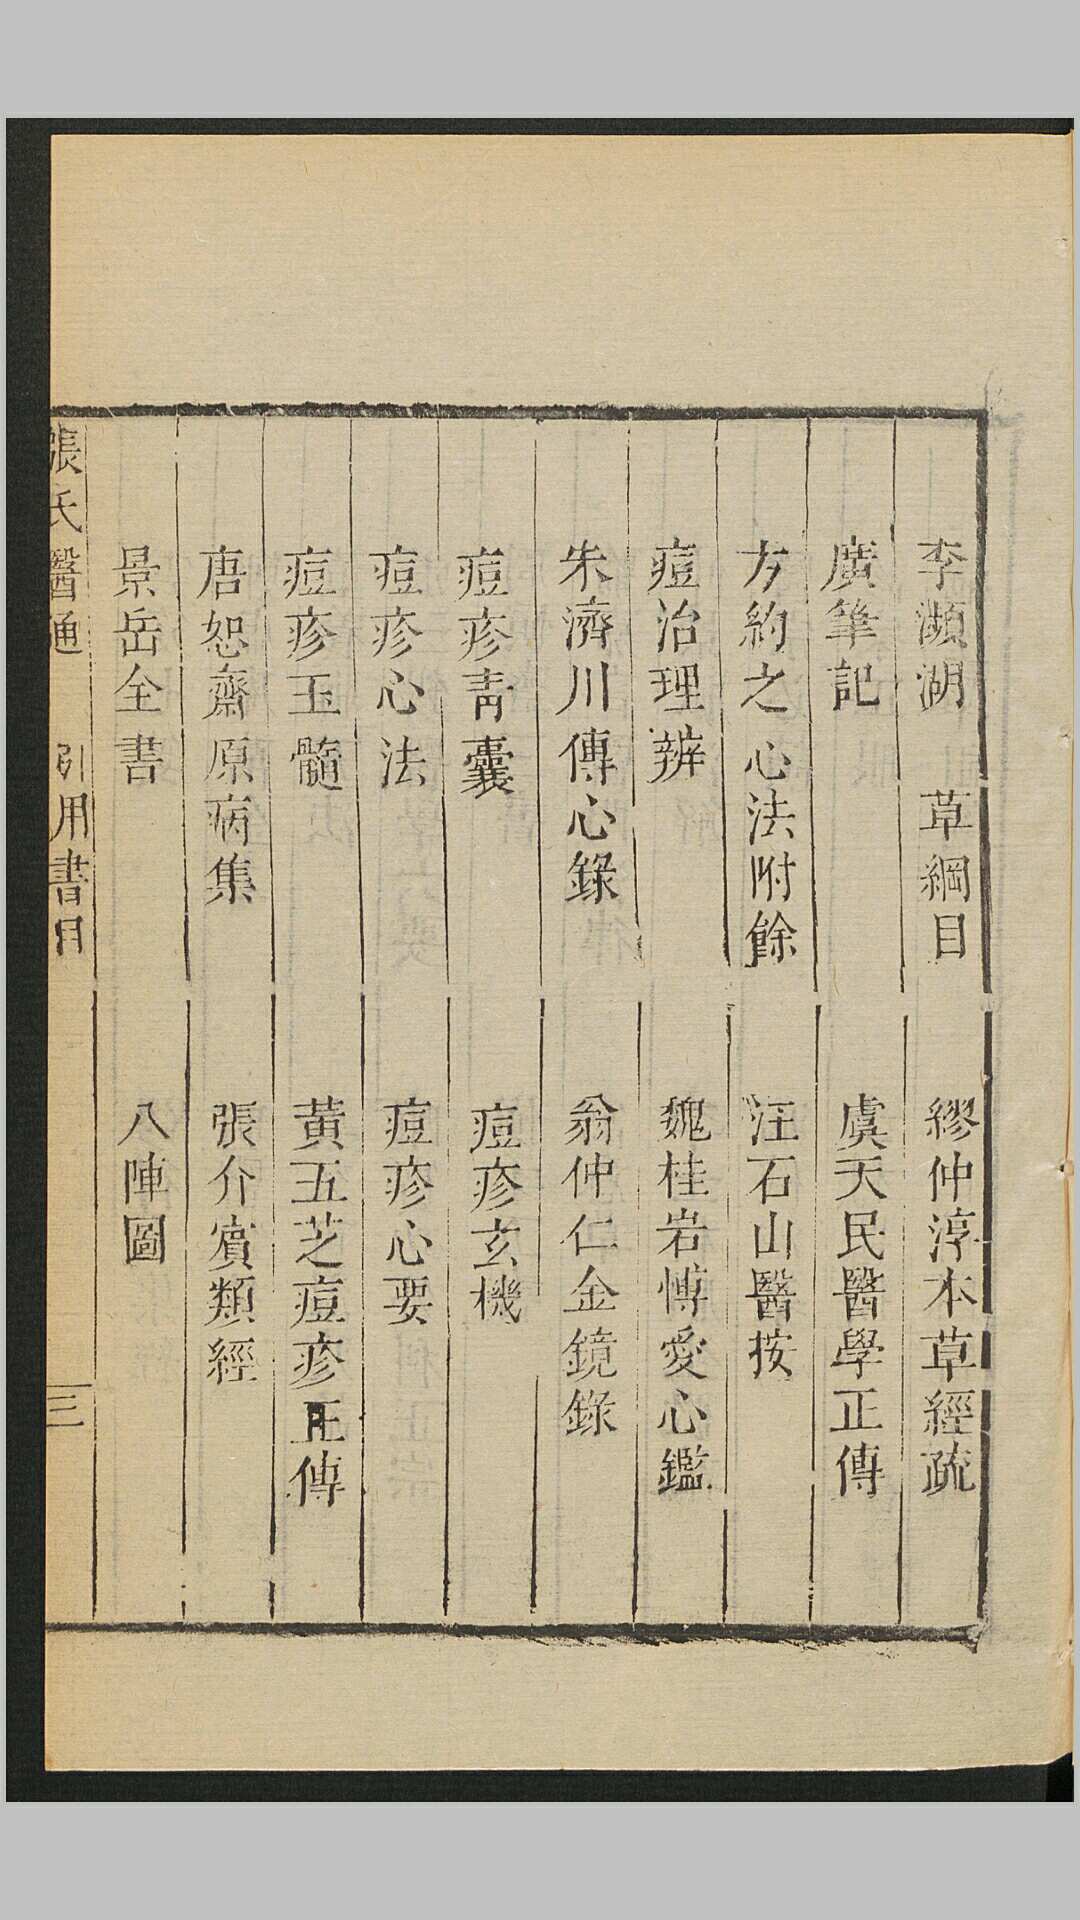 李瀕湖 草綱目
繆仲淳本草經疏
廣筆記
虞天民醫學正傳
方約之心法附餘
汪石山醫按
痘治理辨
魏桂岩博愛心鑑
朱濟川傳心錄
翁仲仁金鏡錄
痘疹青囊
痘疹玄機
痘疹心法
痘疹心要
痘疹玉髓
黃五芝痘疹正傳
唐恕齋原病集
張介賓類經
景岳全書
八陣圖
張氏醫通 引用書目 三